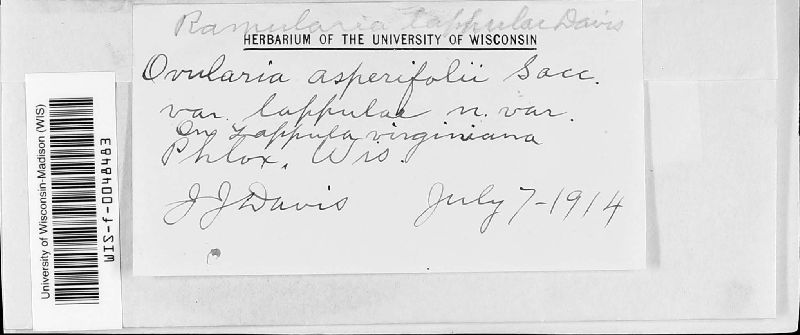 Ramularia lappulae Davis
HERBARIUM OF THE UNIVERSITY OF WISCONSIN
Ovularia asperifolii Sacc.
var. lappulae n. var.
On Lappula virginiana
Phlox, Wis.
J J Davis July 7-1914
University of Wisconsin-Madison (WIS)
WIS-f-0048483